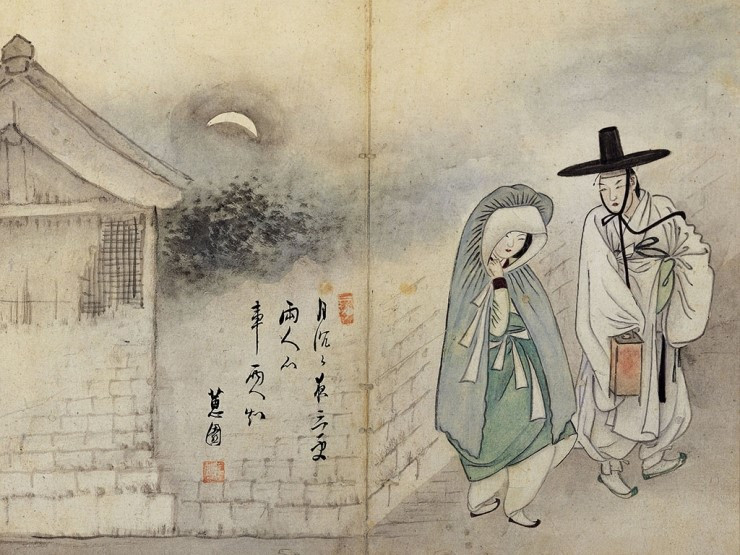 月沈〻夜三更
兩人心
事兩人知
蕙園